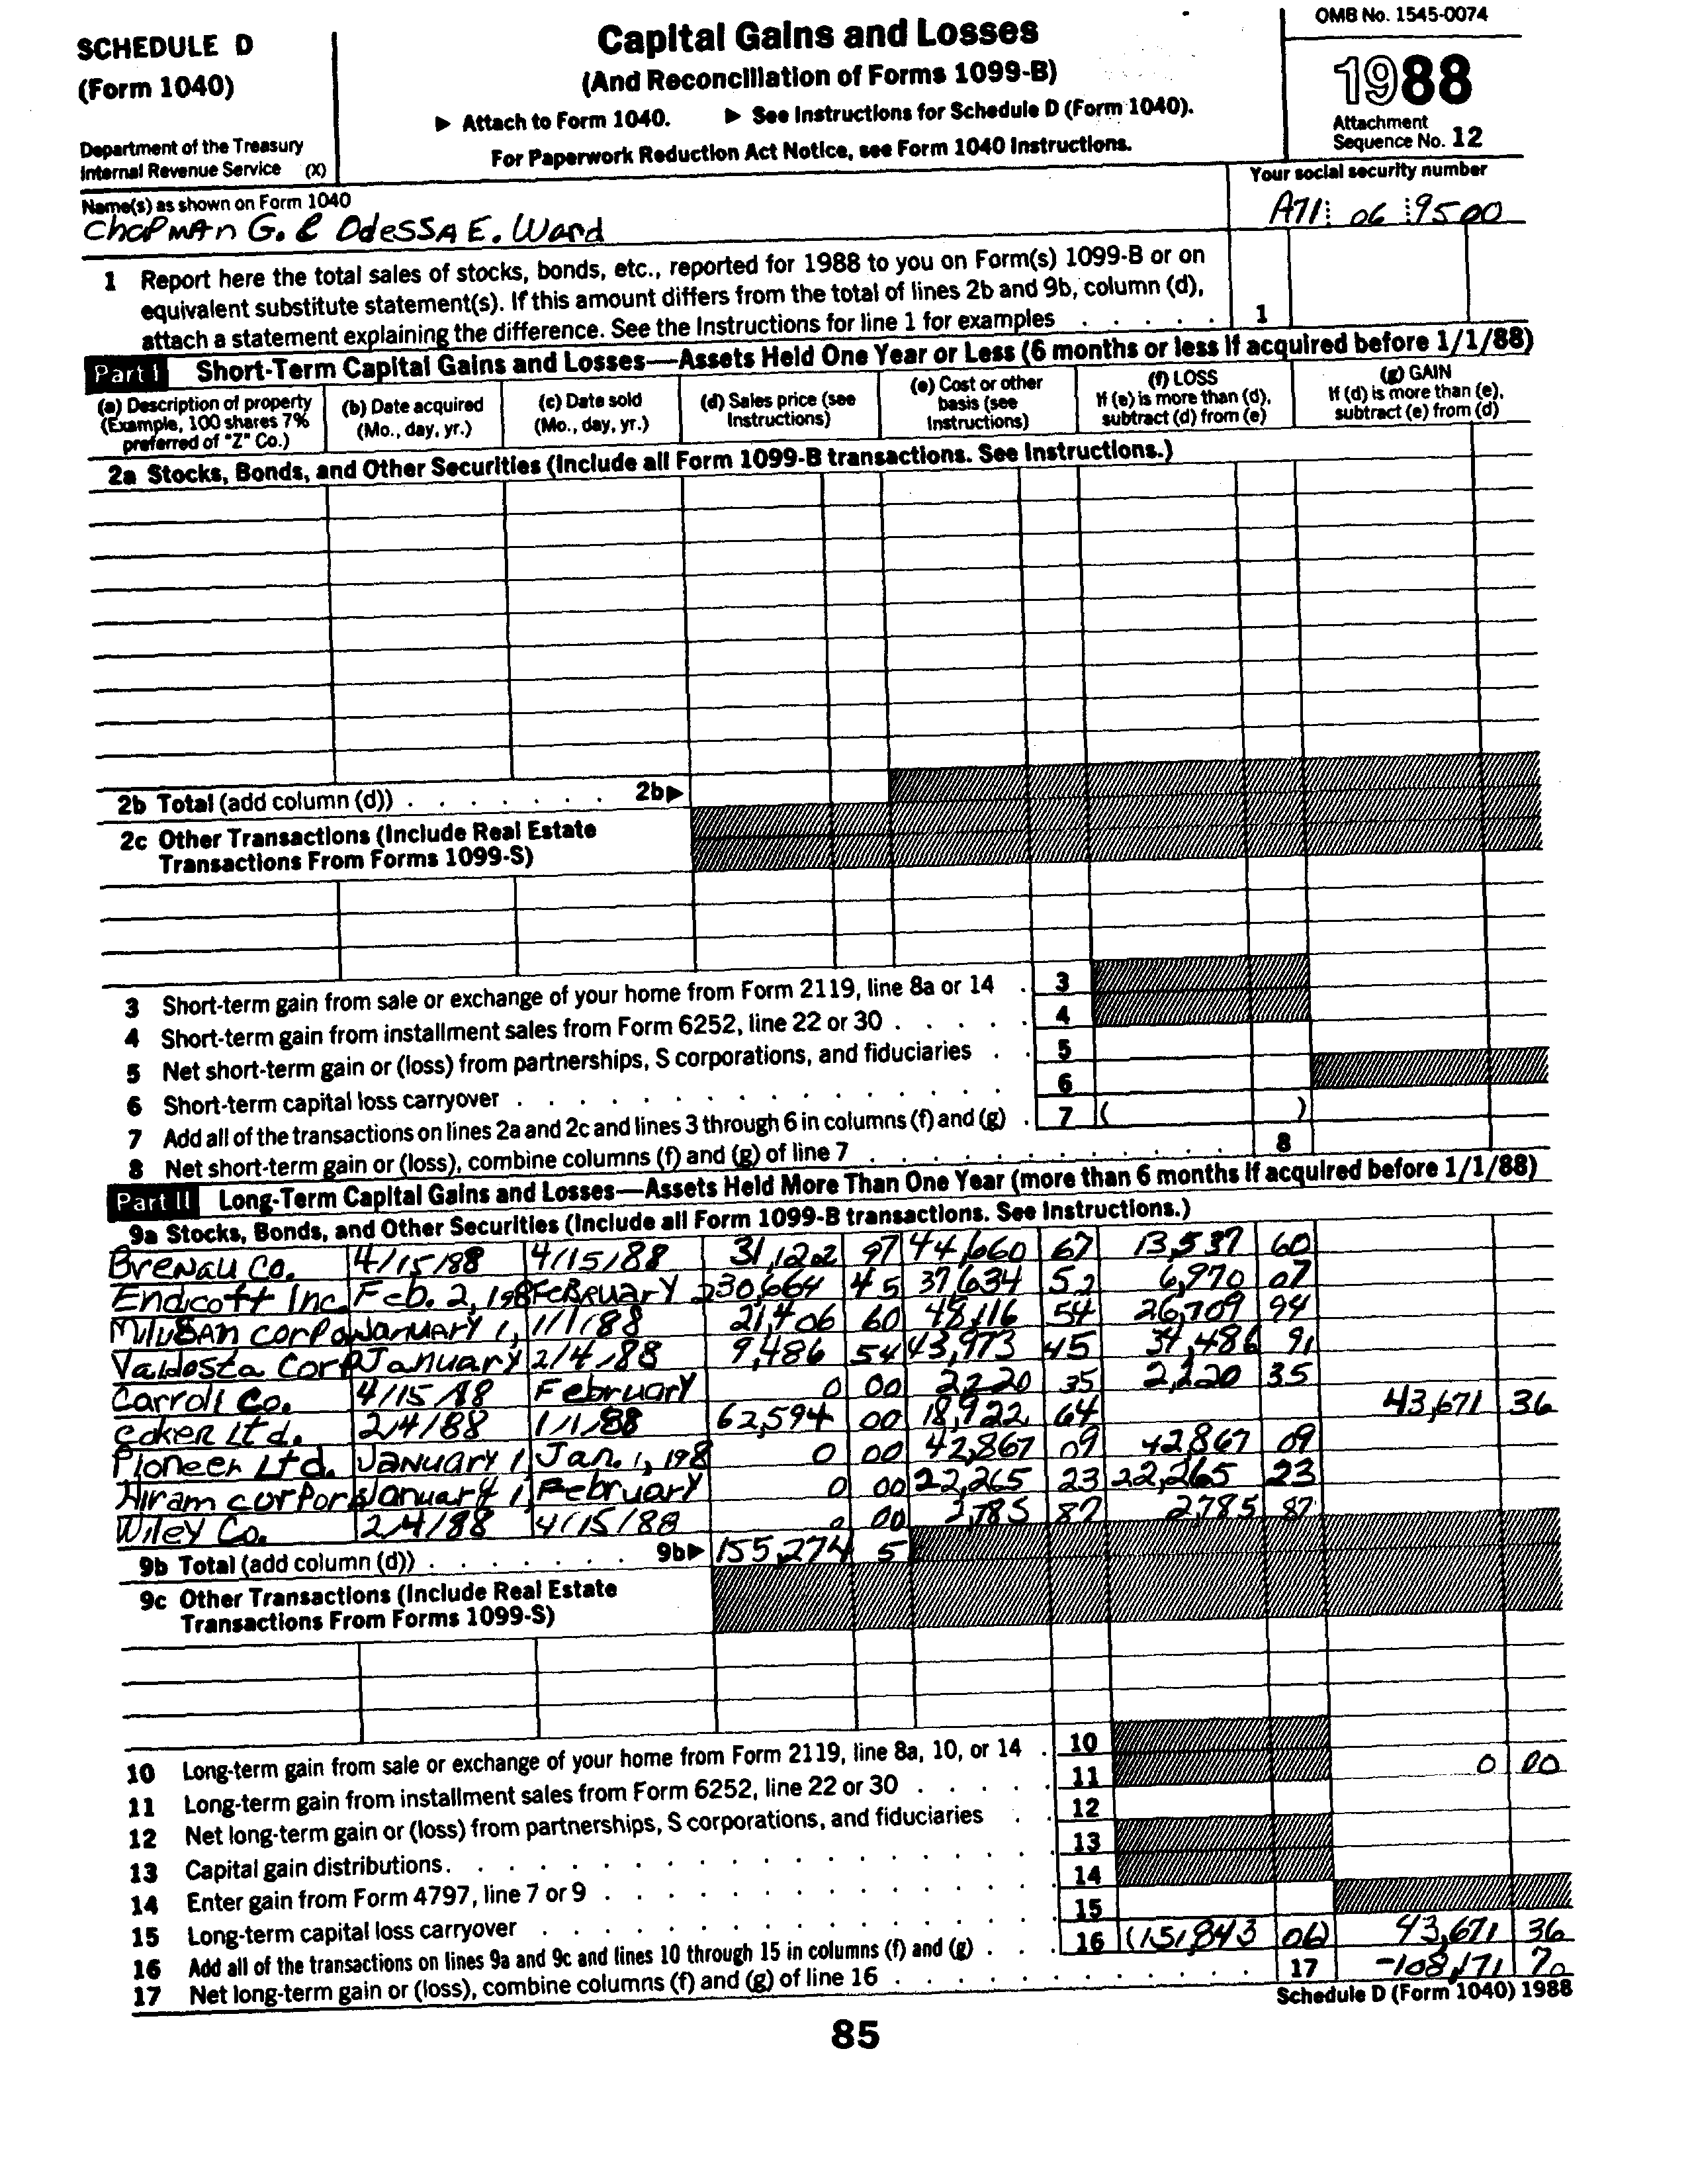 SCHEDULE D
(Form 1040)
Department of the Treasury
Internal Revenue Service (X)
Capital Gains and Losses
(And Reconciliation of Forms 1099-B)
▶ Attach to Form 1040. ▶ See Instructions for Schedule D (Form 1040).
For Paperwork Reduction Act Notice, see Form 1040 Instructions.
OMB No. 1545-0074
1988
Attachment
Sequence No. 12
Name(s) as shown on Form 1040
Your social security number
ChaPMAn G. & OdeSSA E. Ward
A71 06 9500
1 Report here the total sales of stocks, bonds, etc., reported for 1988 to you on Form(s) 1099-B or on
equivalent substitute statement(s). If this amount differs from the total of lines 2b and 9b, column (d),
attach a statement explaining the difference. See the Instructions for line 1 for examples . . . . . 1
Part I Short-Term Capital Gains and Losses—Assets Held One Year or Less (6 months or less if acquired before 1/1/88)
(a) Description of property
(Example, 100 shares 7%
preferred of "Z" Co.)
(b) Date acquired
(Mo., day, yr.)
(c) Date sold
(Mo., day, yr.)
(d) Sales price (see
Instructions)
(e) Cost or other
basis (see
Instructions)
(f) LOSS
If (e) is more than (d),
subtract (d) from (e)
(g) GAIN
If (d) is more than (e),
subtract (e) from (d)
2a Stocks, Bonds, and Other Securities (Include all Form 1099-B transactions. See Instructions.)
2b Total (add column (d)) . . . . . . . 2b▶
2c Other Transactions (Include Real Estate
Transactions From Forms 1099-S)
3 Short-term gain from sale or exchange of your home from Form 2119, line 8a or 14 . 3
4 Short-term gain from installment sales from Form 6252, line 22 or 30 . . . . . 4
5 Net short-term gain or (loss) from partnerships, S corporations, and fiduciaries . . 5
6 Short-term capital loss carryover . . . . . . . . . . . . . 6
7 Add all of the transactions on lines 2a and 2c and lines 3 through 6 in columns (f) and (g) . 7 ( )
8 Net short-term gain or (loss), combine columns (f) and (g) of line 7 . . . . . . . . . . . 8
Part II Long-Term Capital Gains and Losses—Assets Held More Than One Year (more than 6 months if acquired before 1/1/88)
9a Stocks, Bonds, and Other Securities (Include all Form 1099-B transactions. See Instructions.)
BreNau Co. 4/15/88 4/15/88 31,122 97 44,660 67 13,537 60
Endicott Inc. Feb. 2, 198 FeBRuarY 2 30,664 45 37,634 52 6,970 07
corpo JanuARy 1, 1/1/88 21,406 60 48,116 54 26,709 94
Valdosta Corp January 2/4/88 9,486 54 43,973 45 34,486 91
Carroll Co. 4/15/88 February 0 00 2220 35 2,220 35
coker Ltd. 2/4/88 1/1/88 62,594 00 18,922 64 43,671 36
Pioneer Ltd. January 1 Jan. 1, 198 0 00 42,867 09 42,867 09
Hiram corpor January 1, February 0 00 22,265 23 22,265 23
Wiley Co. 2/4/88 4/15/88 0 00 2,785 87 2,785 87
9b Total (add column (d)) . . . . . . . 9b▶ 155,274 5
9c Other Transactions (Include Real Estate
Transactions From Forms 1099-S)
10 Long-term gain from sale or exchange of your home from Form 2119, line 8a, 10, or 14 . 10
11 Long-term gain from installment sales from Form 6252, line 22 or 30 . . . . . 11 0 00
12 Net long-term gain or (loss) from partnerships, S corporations, and fiduciaries . . 12
13 Capital gain distributions. . . . . . . . . . . . . . . . 13
14 Enter gain from Form 4797, line 7 or 9 . . . . . . . . . . . . 14
15 Long-term capital loss carryover . . . . . . . . . . . . . 15
16 Add all of the transactions on lines 9a and 9c and lines 10 through 15 in columns (f) and (g) . . . 16 (151,843 06) 43,671 36
17 Net long-term gain or (loss), combine columns (f) and (g) of line 16 . . . . . . . . . . . 17 -108,171 70
Schedule D (Form 1040) 1988
85